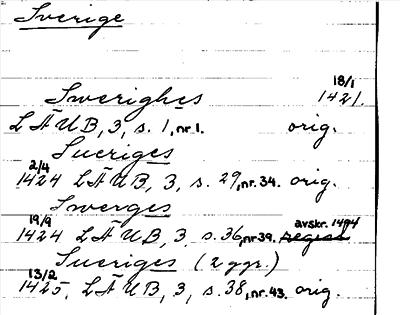 Sverige
18/1
Swerighes 1421.
LÄUB, 3, s. 1, nr 1. orig.
Sueriges
2/4
1424 LÄUB, 3, s. 29, nr. 34. orig.
Swerges
19/9 avskr. 1494
1424 LÄUB, 3, s. 36, nr 39. regest
Sueriges (2 ggr.)
13/2
1425, LÄUB, 3, s. 38, nr. 43. orig.